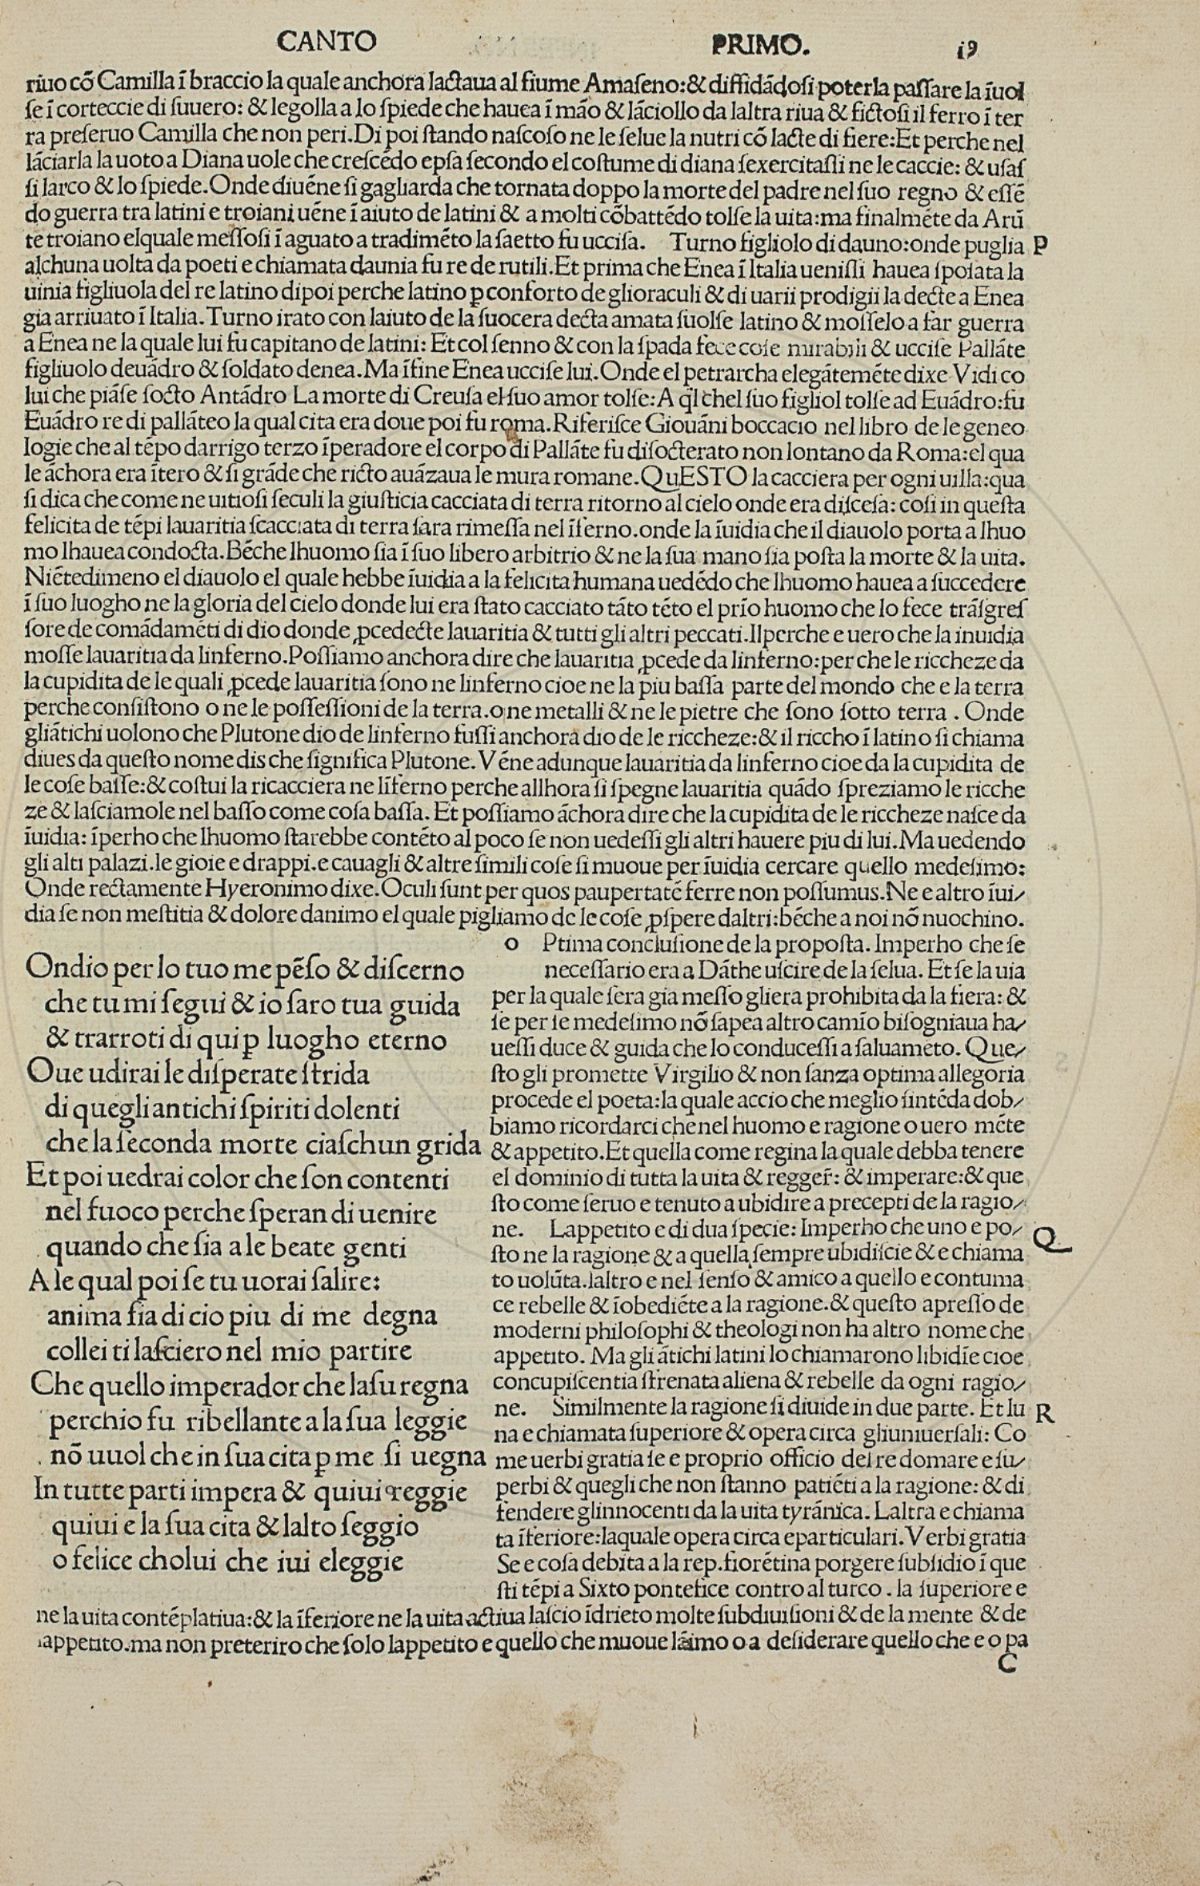 CANTO PRIMO. i9
riuo cō Camilla ī braccio la quale anchora lactaua al fiume Amaſeno:& diffidādoſi poterla paſſare la īuol
ſe ī corteccie di ſuuero: & legolla a lo ſpiede che hauea ī māo & lāciollo da laltra riua & fictoſi il ferro ī ter
ra preſeruo Camilla che non peri. Di poi ſtando naſcoſo ne le ſelue la nutri cō lacte di fiere: Et perche nel
lāciarla la uoto a Diana uole che creſcēdo epſa ſecondo el coſtume di diana ſexercitaſſi ne le caccie: & uſaſ
ſi larco & lo ſpiede. Onde diuēne ſi gagliarda che tornata doppo la morte del padre nel ſuo regno & eſſē
do guerra tra latini e troiani uēne ī aiuto de latini & a molti cōbattēdo tolſe la uita: ma finalmēte da Arū
te troiano elquale meſſoſi ī aguato a tradimēto la ſaetto fu ucciſa. Turno figliolo di dauno: onde puglia P
alchuna uolta da poeti e chiamata daunia fu re de rutili. Et prima che Enea ī Italia ueniſſi hauea ſpoſata la
uinia figliuola del re latino dipoi perche latino ꝑ conforto de glioraculi & di uarii prodigii la decte a Enea
gia arriuato ī Italia. Turno irato con laiuto de la ſuocera decta amata ſuolſe latino & moſſelo a far guerra
a Enea ne la quale lui fu capitano de latini: Et col ſenno & con la ſpada fece coſe mirabili & ucciſe Pallāte
figliuolo deuādro & ſoldato denea. Ma īfine Enea ucciſe lui. Onde el petrarcha elegātemēte dixe Vidi co
lui che piāſe ſocto Antādro La morte di Creuſa el ſuo amor tolſe: A q̄l chel ſuo figliol tolſe ad Euādro: fu
Euādro re di pallāteo la qual cita era doue poi fu roma. Riferiſce Giouāni boccacio nel libro de le geneo
logie che al tēpo darrigo terzo īperadore el corpo di Pallāte fu diſocterato non lontano da Roma: el qua
le āchora era ītero & ſi grāde che ricto auāzaua le mura romane. QuESTO la cacciera per ogni uilla: qua
ſi dica che come ne uitioſi ſeculi la giuſticia cacciata di terra ritorno al cielo onde era diſceſa: coſi in queſta
felicita de tēpi lauaritia ſcacciata di terra ſara rimeſſa nel īferno. onde la īuidia che il diauolo porta a lhuo
mo lhauea condocta. Bēche lhuomo ſia ī ſuo libero arbitrio & ne la ſua mano ſia poſta la morte & la uita.
Niētedimeno el diauolo el quale hebbe īuidia a la felicita humana uedēdo che lhuomo hauea a ſuccedere
ī ſuo luogho ne la gloria del cielo donde lui era ſtato cacciato tāto tēto el prīo huomo che lo fece trāſgreſ
ſore de comādamēti di dio donde ꝓcedecte lauaritia & tutti gli altri peccati. Ilperche e uero che la inuidia
moſſe lauaritia da linferno. Poſſiamo anchora dire che lauaritia ꝓcede da linferno: per che le riccheze da
la cupidita de le quali ꝓcede lauaritia ſono ne linferno cioe ne la piu baſſa parte del mondo che e la terra
perche conſiſtono o ne le poſſeſſioni de la terra. o ne metalli & ne le pietre che ſono ſotto terra . Onde
gliātichi uolono che Plutone dio de linferno fuſſi anchora dio de le riccheze: & il riccho ī latino ſi chiama
diues da queſto nome dis che ſignifica Plutone. Vēne adunque lauaritia da linferno cioe da la cupidita de
le coſe baſſe: & coſtui la ricacciera ne līferno perche allhora ſi ſpegne lauaritia quādo ſpreziamo le ricche
ze & laſciamole nel baſſo come coſa baſſa. Et poſſiamo āchora dire che la cupidita de le riccheze naſce da
īuidia: īperho che lhuomo ſtarebbe contēto al poco ſe non uedeſſi gli altri hauere piu di lui. Ma uedendo
gli alti palazi. le gioie e drappi. e cauagli & altre ſimili coſe ſi muoue per īuidia cercare quello medeſimo:
Onde rectamente Hyeronimo dixe. Oculi ſunt per quos paupertatē ferre non poſſumus. Ne e altro īui/
dia ſe non meſtitia & dolore danimo el quale pigliamo de le coſe ꝓſpere daltri: bēche a noi nō nuochino.
Ondio per lo tuo me pēſo & diſcerno
che tu mi ſegui & io ſaro tua guida
& trarroti di qui ꝑ luogho eterno
Oue udirai le diſperate ſtrida
di quegli antichi ſpiriti dolenti
che la ſeconda morte ciaſchun grida
Et poi uedrai color che ſon contenti
nel fuoco perche ſperan di uenire
quando che ſia a le beate genti
A le qual poi ſe tu uorai ſalire:
anima fia di cio piu di me degna
collei ti laſciero nel mio partire
Che quello imperador che laſu regna
perchio fu ribellante a la ſua leggie
nō uuol che in ſua cita ꝑ me ſi uegna
In tutte parti impera & quiui reggie
quiui e la ſua cita & lalto ſeggio
o felice cholui che iui eleggie
o Ptima concluſione de la propoſta. Imperho che ſe
neceſſario era a Dāthe uſcire de la ſelua. Et ſe la uia
per la quale ſera gia meſſo gliera prohibita da la fiera: &
ſe per ſe medeſimo nō ſapea altro camīo biſogniaua ha/
ueſſi duce & guida che lo conduceſſi a ſaluamēto. Que/
ſto gli promette Virgilio & non ſanza optima allegoria
procede el poeta: la quale accio che meglio ſintēda dob/
biamo ricordarci che nel huomo e ragione o uero mēte
& appetito. Et quella come regina la quale debba tenere
el dominio di tutta la uita & regger̄: & imperare: & que
ſto come ſeruo e tenuto a ubidire a precepti de la ragio/
ne. Lappetito e di dua ſpecie: Imperho che uno e po/ Q
ſto ne la ragione & a quella ſempre ubidiſcie & e chiama
to uolūta. laltro e nel ſenſo & amico a quello e contuma
ce rebelle & īobediēte a la ragione. & queſto apreſſo de
moderni philoſophi & theologi non ha altro nome che
appetito. Ma gli ātichi latini lo chiamarono libidīe cioe
concupiſcentia ſfrenata aliena & rebelle da ogni ragio/
ne. Similmente la ragione ſi diuide in due parte. Et lu R
na e chiamata ſuperiore & opera circa gliuniuerſali: Co
me uerbi gratia ſe e proprio officio del re domare e ſu/
perbi & quegli che non ſtanno patiēti a la ragione: & di
fendere glinnocenti da la uita tyrānica. Laltra e chiama
ta īferiore: laquale opera circa eparticulari. Verbi gratia
Se e coſa debita a la rep. fiorētina porgere ſubſidio ī que
ſti tēpi a Sixto pontefice contro al turco . la ſuperiore e
ne la uita contēplatiua: & la īferiore ne la uita actiua laſcio īdrieto molte ſubdiuiſioni & de la mente & de
lappetito. ma non preteriro che ſolo lappetito e quello che muoue lāimo o a deſiderare quello che e o pa
C